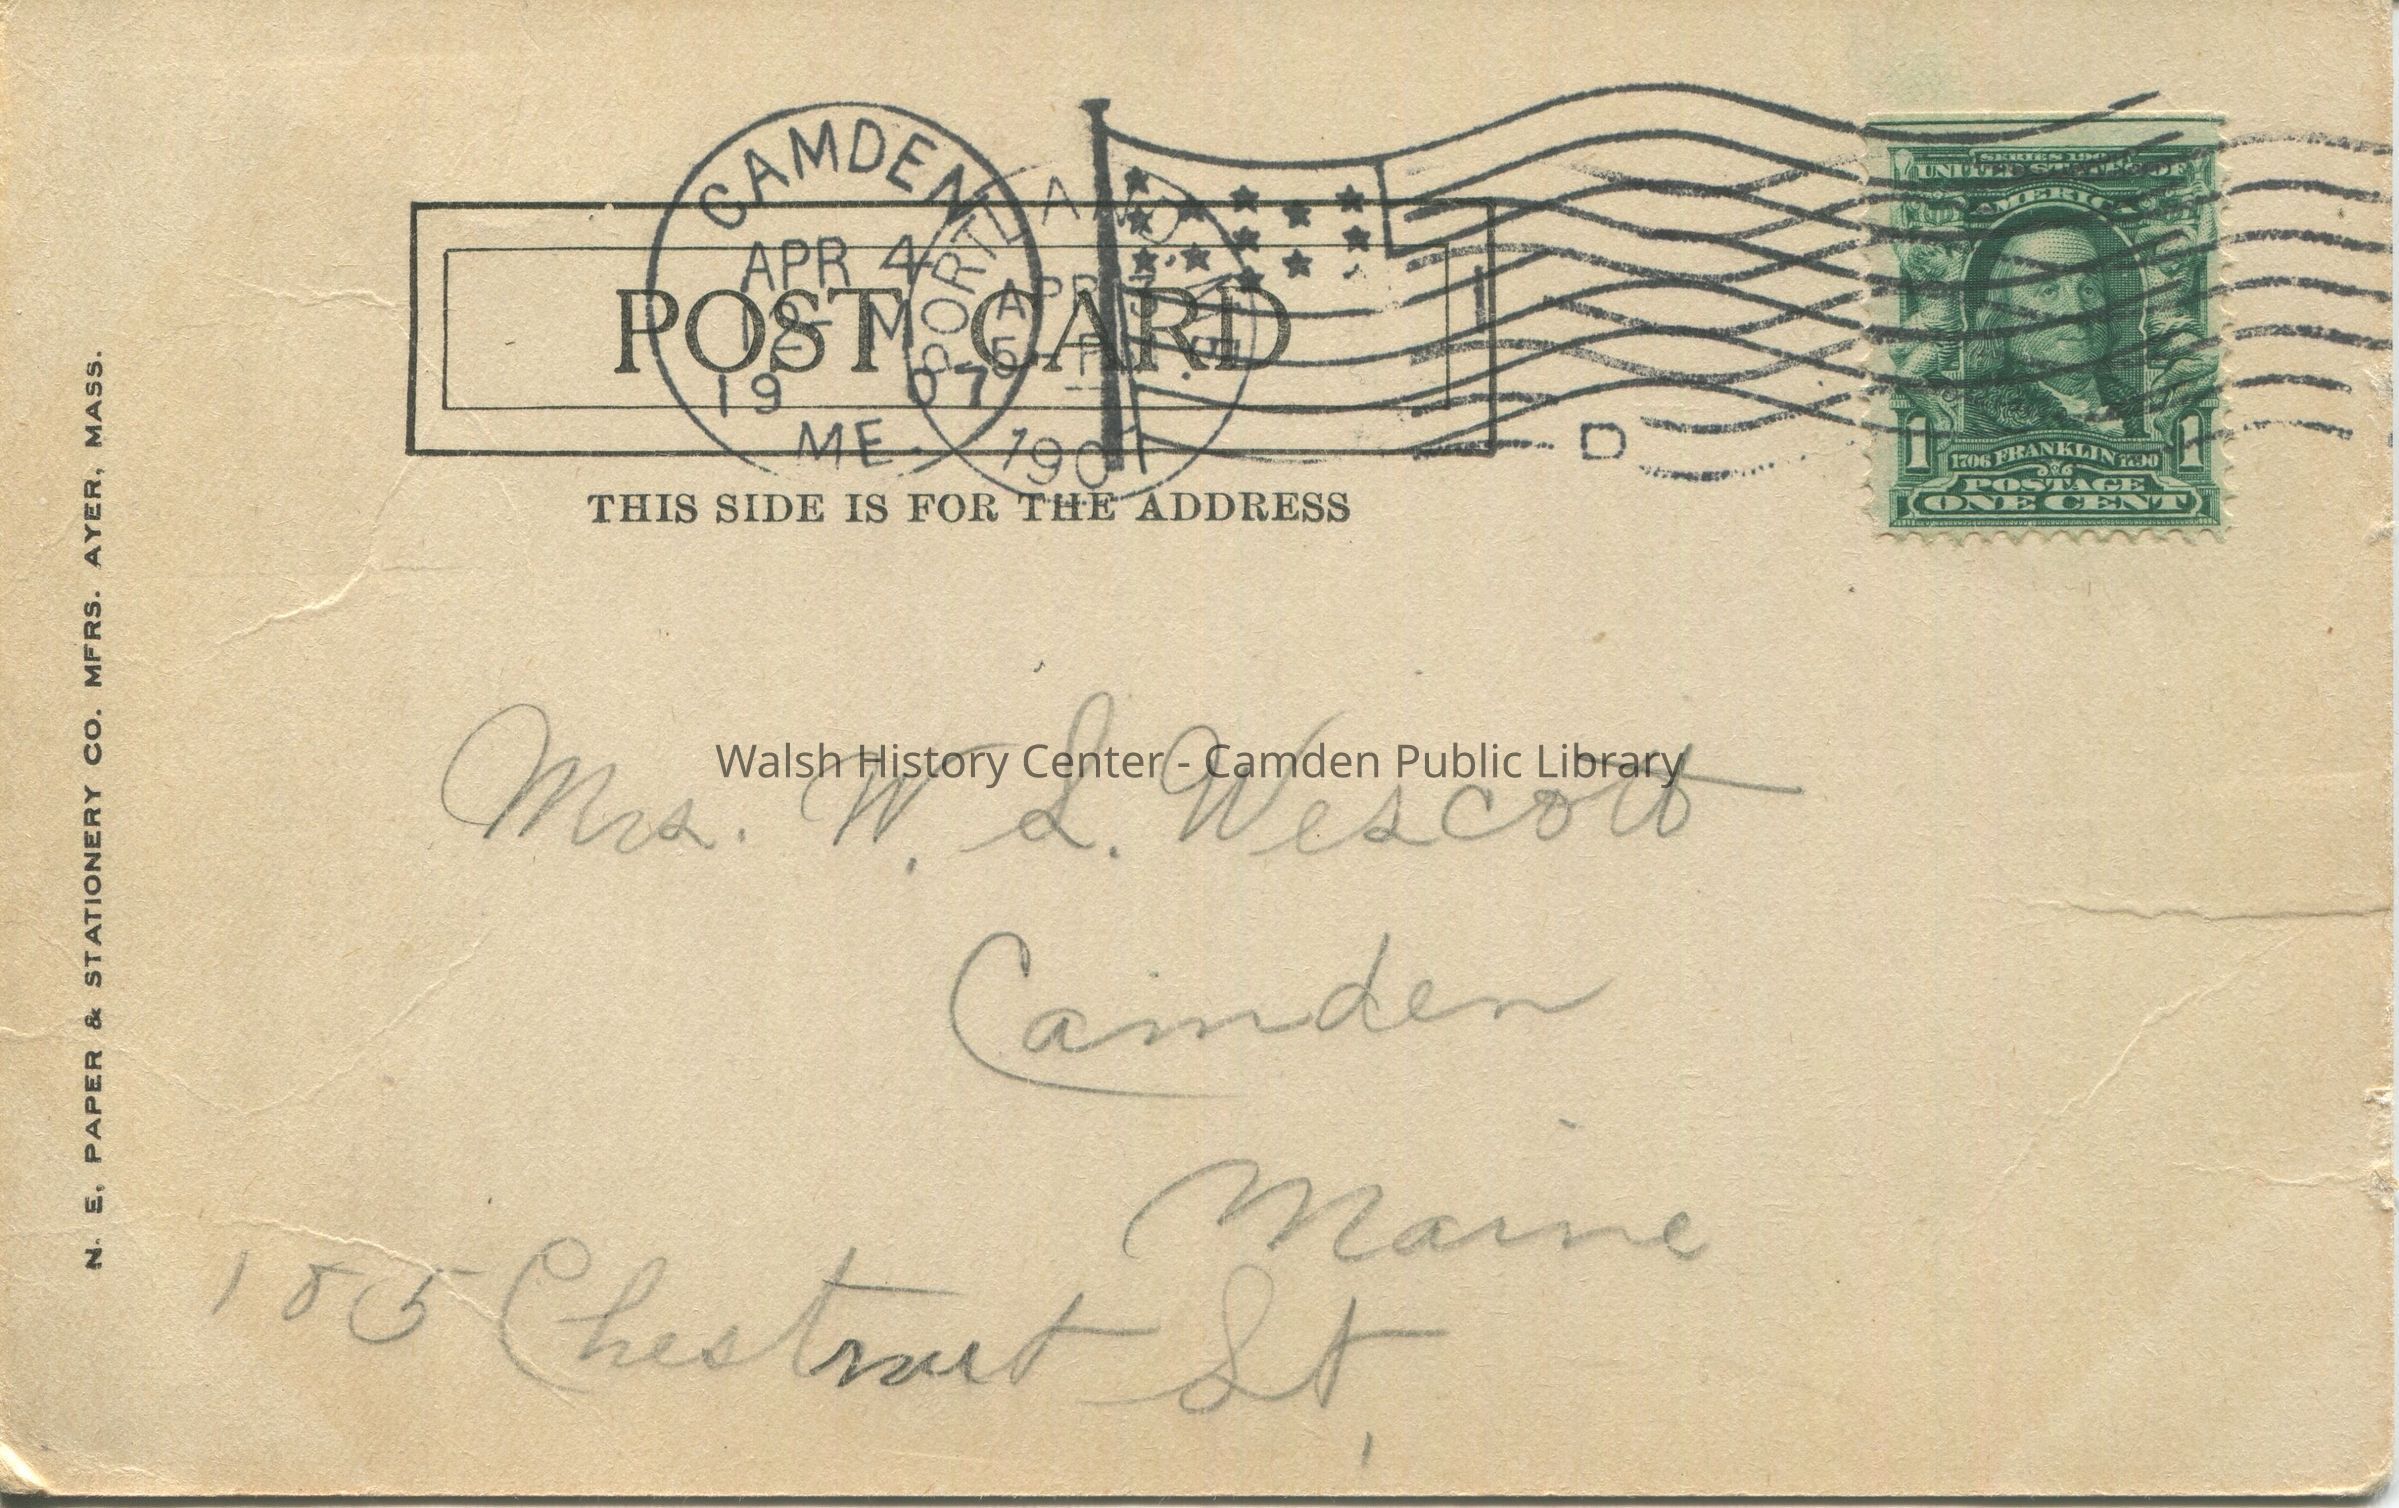 CAMDEN
APR 4
12 - M
19 07
ME.
PORTLAND,
APR 3
5 - P
190
POST CARD
THIS SIDE IS FOR THE ADDRESS
D
SERIES 1902
UNITED STATES OF
AMERICA
1 1
1706 FRANKLIN 1790
POSTAGE
ONE CENT
N. E. PAPER & STATIONERY CO. MFRS. AYER, MASS.
Walsh History Center - Camden Public Library
Mrs. W. S. Wescott
Camden
Maine
185 Chestnut St,